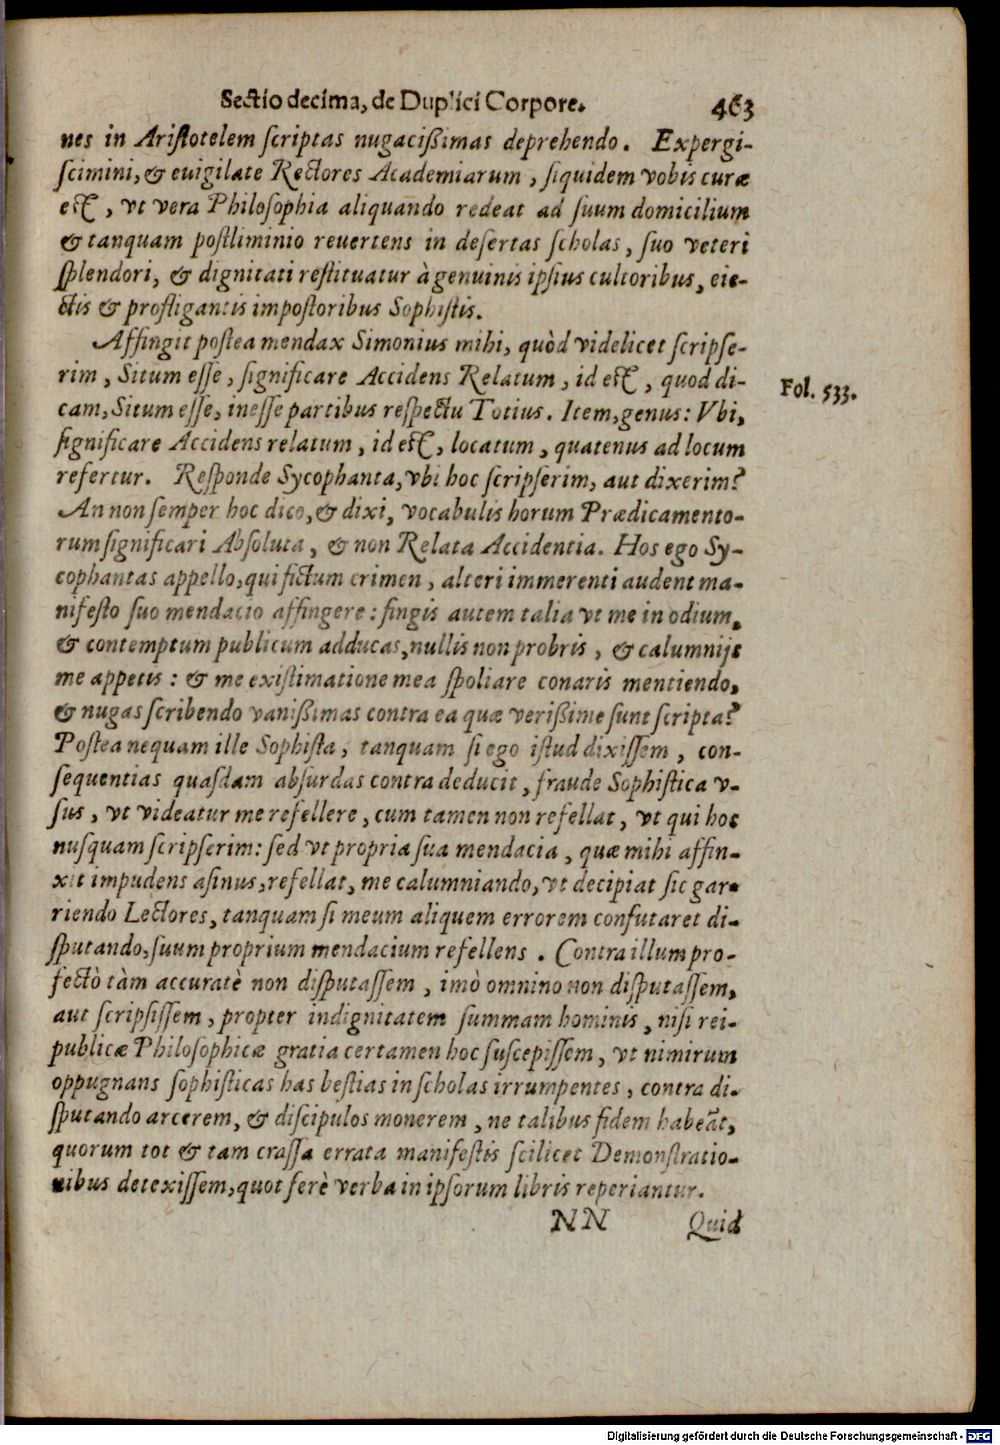 Sectio decima, de Duplici Corpore. 463
nes in Aristotelem scriptas nugacißimas deprehendo. Expergi-
scimini, & euigilate Rectores Academiarum, siquidem vobis curæ
est, vt vera Philosophia aliquando redeat ad suum domicilium
& tanquam postliminio reuertens in desertas scholas, suo veteri
splendori, & dignitati restituatur à genuinis ipsius cultoribus, eie-
ctis & profligantis impostoribus Sophistis.
Affingit postea mendax Simonius mihi, quòd videlicet scripse-
rim, Situm esse, significare Accidens Relatum, id est, quod di-
cam, Situm esse, inesse partibus respectu Totius. Item, genus: Vbi,
significare Accidens relatum, id est, locatum, quatenus ad locum
refertur. Responde Sycophanta, vbi hoc scripserim, aut dixerim?
An non semper hoc dico, & dixi, vocabulis horum Prædicamento-
rum significari Absoluta, & non Relata Accidentia. Hos ego Sy-
cophantas appello, qui fictum crimen, alteri immerenti audent ma-
nifesto suo mendacio affingere: fingis autem talia vt me in odium,
& contemptum publicum adducas, nullis non probris, & calumnijs
me appetis: & me existimatione mea spoliare conaris mentiendo,
& nugas scribendo vanißimas contra ea quæ verißime sunt scripta?
Postea nequam ille Sophista, tanquam si ego istud dixissem, con-
sequentias quasdam absurdas contra deducit, fraude Sophistica v-
sus, vt videatur me refellere, cum tamen non refellat, vt qui hoc
nusquam scripserim: sed vt propria sua mendacia, quæ mihi affin-
xit impudens asinus, refellat, me calumniando, vt decipiat sic gar-
riendo Lectores, tanquam si meum aliquem errorem confutaret di-
sputando, suum proprium mendacium refellens. Contra illum pro-
fectò tàm accuratè non disputassem, imò omnino non disputassem,
aut scripsissem, propter indignitatem summam hominis, nisi rei-
publicæ Philosophicæ gratia certamen hoc suscepissem, vt nimirum
oppugnans sophisticas has bestias in scholas irrumpentes, contra di-
sputando arcerem, & discipulos monerem, ne talibus fidem habeāt,
quorum tot & tam crassa errata manifestis scilicet Demonstratio-
nibus detexissem, quot ferè verba in ipsorum libris reperiantur.
NN Quid
Fol. 533.
Digitalisierung gefördert durch die Deutsche Forschungsgemeinschaft - DFG